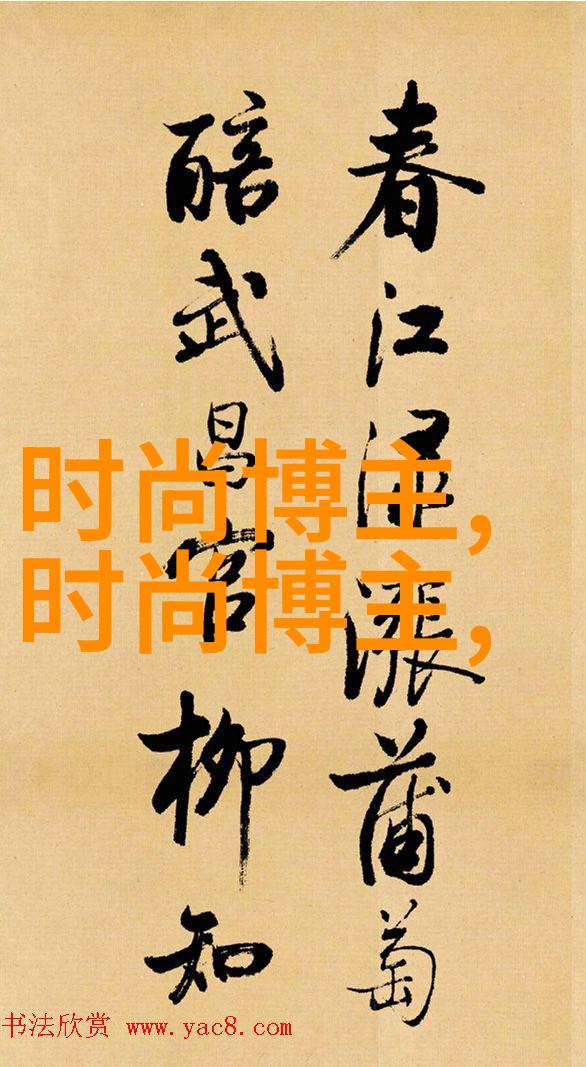 春江渌涨蒲萄
醅武昌官柳知
时尚博主,
时尚博主,
书法欣赏 www.yac8.com